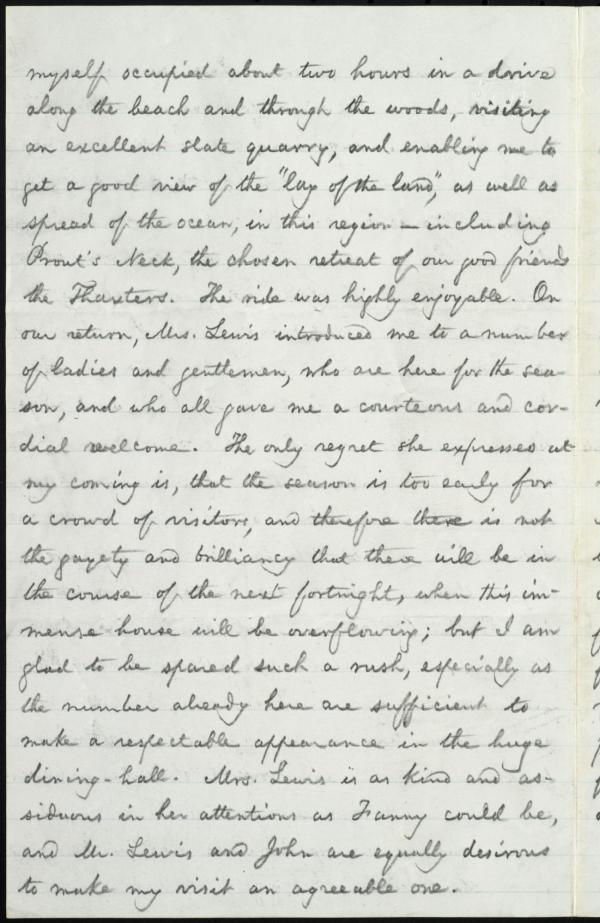 myself occupied about two hours in a drive
along the beach and through the woods, visiting
an excellent slate quarry, and enabling me to
get a good view of the "lay of the land", as well as
spread of the ocean, in this region — including
Prout's Neck, the chosen retreat of our good friends
the Thaxters. The ride was highly enjoyable. On
our return, Mrs. Lewis introduced me to a number
of ladies and gentlemen, who are here for the sea-
son, and who all gave me a courteous and cor-
dial welcome. The only regret she expresses at
my coming is, that the season is too early for
a crowd of visitors, and therefore there is not
the gayety and brilliancy that there will be in
the course of the next fortnight, when this im-
mense house will be overflowing; but I am
glad to be spared such a rush, especially as
the number already here are sufficient to
make a respectable appearance in the huge
dining-hall. Mrs. Lewis is as kind and as-
siduous in her attentions as Fanny could be,
and Mr. Lewis and John are equally desirous
to make my visit an agreeable one.